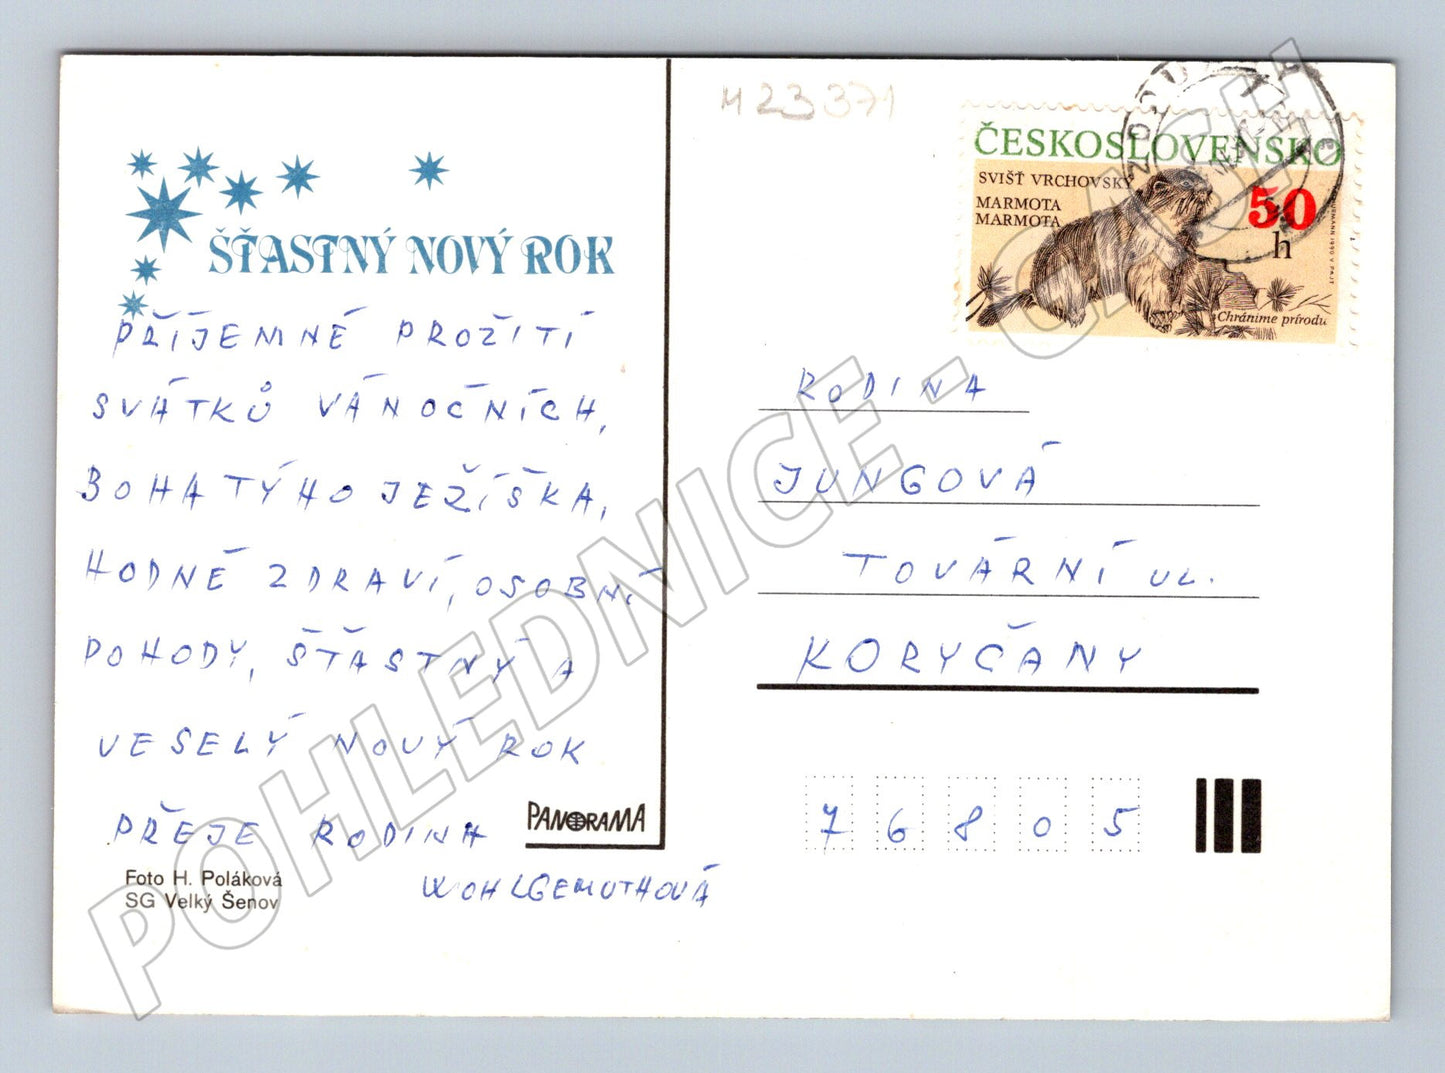 ŠŤASTNÝ NOVÝ ROK
PŘÍJEMNÉ PROŽITÍ
SVÁTKŮ VÁNOČNÍCH,
BOHATÝHO JEŽÍŠKA,
HODNĚ ZDRAVÍ, OSOBNÍ
POHODY, ŠŤASTNÝ A
VESELÝ NOVÝ ROK
PŘEJE RODINA
WOHLGEMUTHOVÁ
PANORAMA
Foto H. Poláková
SG Velký Šenov
M 23 371
ČESKOSLOVENSKO
SVIŠŤ VRCHOVSKÝ
MARMOTA
MARMOTA
50
h
Chráníme prírodu
RODINA
JUNGOVÁ
TOVÁRNÍ UL.
KORYČANY
76805
POHLEDNICE - CASH